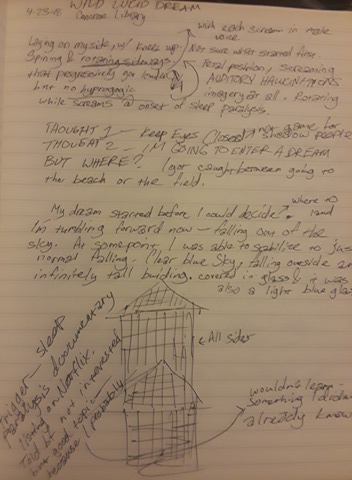 4-23-18 WILD LUCID DREAM
Library
with each scream in male
voice
Laying on my side, w/ knees up. Not sure what started first.
Spinning & rotating sideways Fetal position, screaming
that progressively got louder AUDITORY HALLUCINATIONS
but no hypnagogic imagery at all. Rotating
while screams & onset of sleep paralysis.
THOUGHT 1 - Keep Eyes Closed! not game for shadow people
THOUGHT 2 - I'M GOING TO ENTER A DREAM
BUT WHERE? I got caught between going to
the beach or the field.
where no
land
My dream started before I could decide!
I'm tumbling forward now - falling out of the
sky. At some point, I was able to stabilize to just
normal falling. Clear blue sky, falling outside an
infinitely tall building. covered in glass & it was
also a light blue glass
All sides
Trigger - sleep
paralysis documentary
listing on Netflix.
Told bf not interested
but good topic
because I probably
wouldn't learn
something I didn't
already know